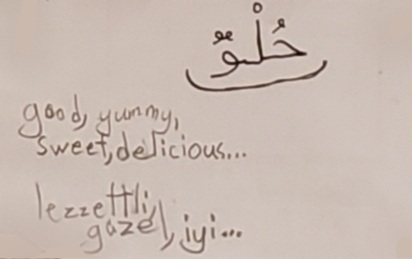 حُلْوٌ
good, yummy,
sweet, delicious...
lezzettli,
gazel, iyi...